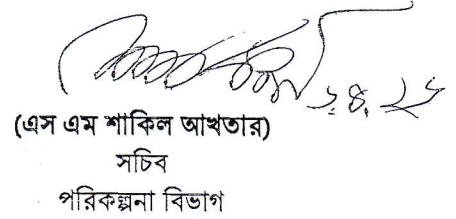 (এস এম শাকিল আখতার)
সচিব
পরিকল্পনা বিভাগ